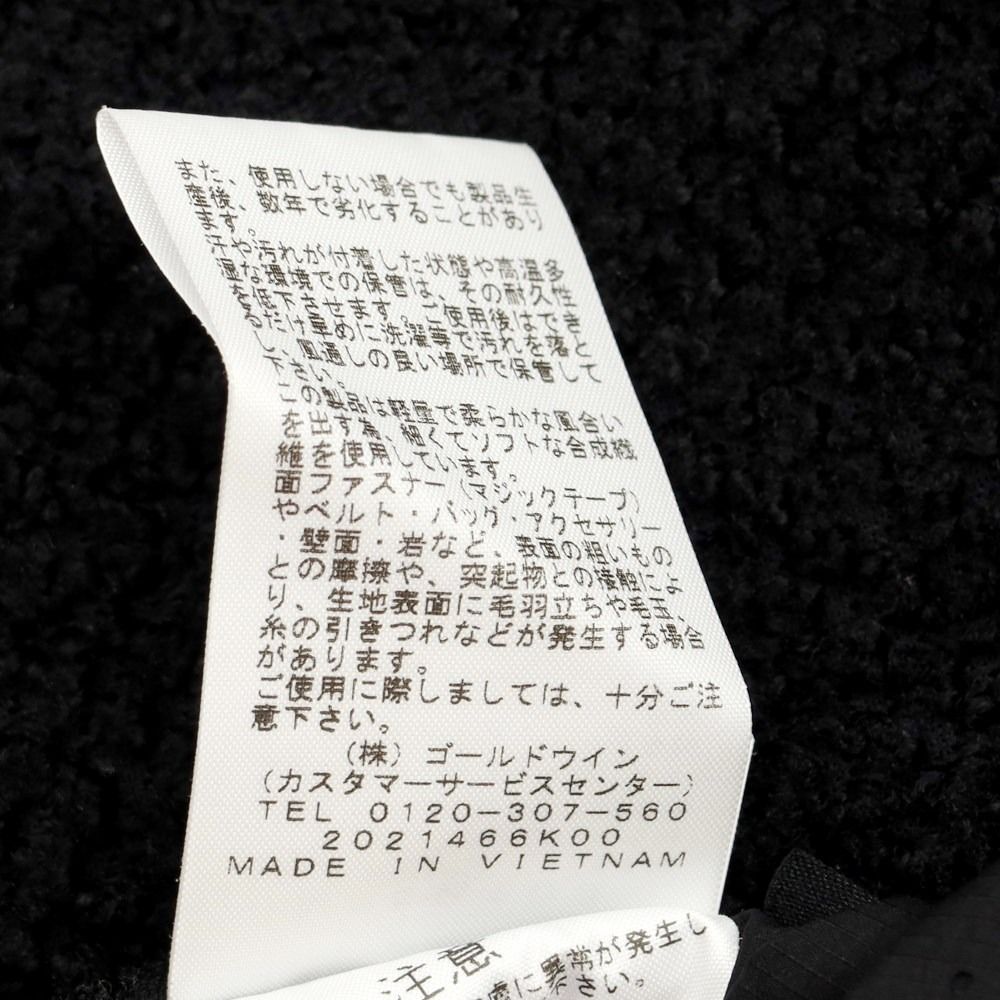 また、使用しない場合でも製品生
産後、数年で劣化することがあり
ます。
汗や汚れが付着した状態や高温多
湿な環境での保管は、その耐久性
を低下させます。ご使用後はでき
るだけ早めに洗濯等で汚れを落と
し、風通しの良い場所で保管して
下さい。
この製品は軽量で柔らかな風合い
を出す為、細くてソフトな合成繊
維を使用しています。
面ファスナー(マジックテープ)
やベルト・バッグ・アクセサリー
・壁面・岩など、表面の粗いもの
との摩擦や、突起物との接触によ
り、生地表面に毛羽立ちや毛玉、
糸の引きつれなどが発生する場合
があります。
ご使用に際しましては、十分ご注
意下さい。
(株)ゴールドウイン
(カスタマーサービスセンター)
TEL 0120-307-560
2021466K00
MADE IN VIETNAM
注意
に異常が発生し
さい。